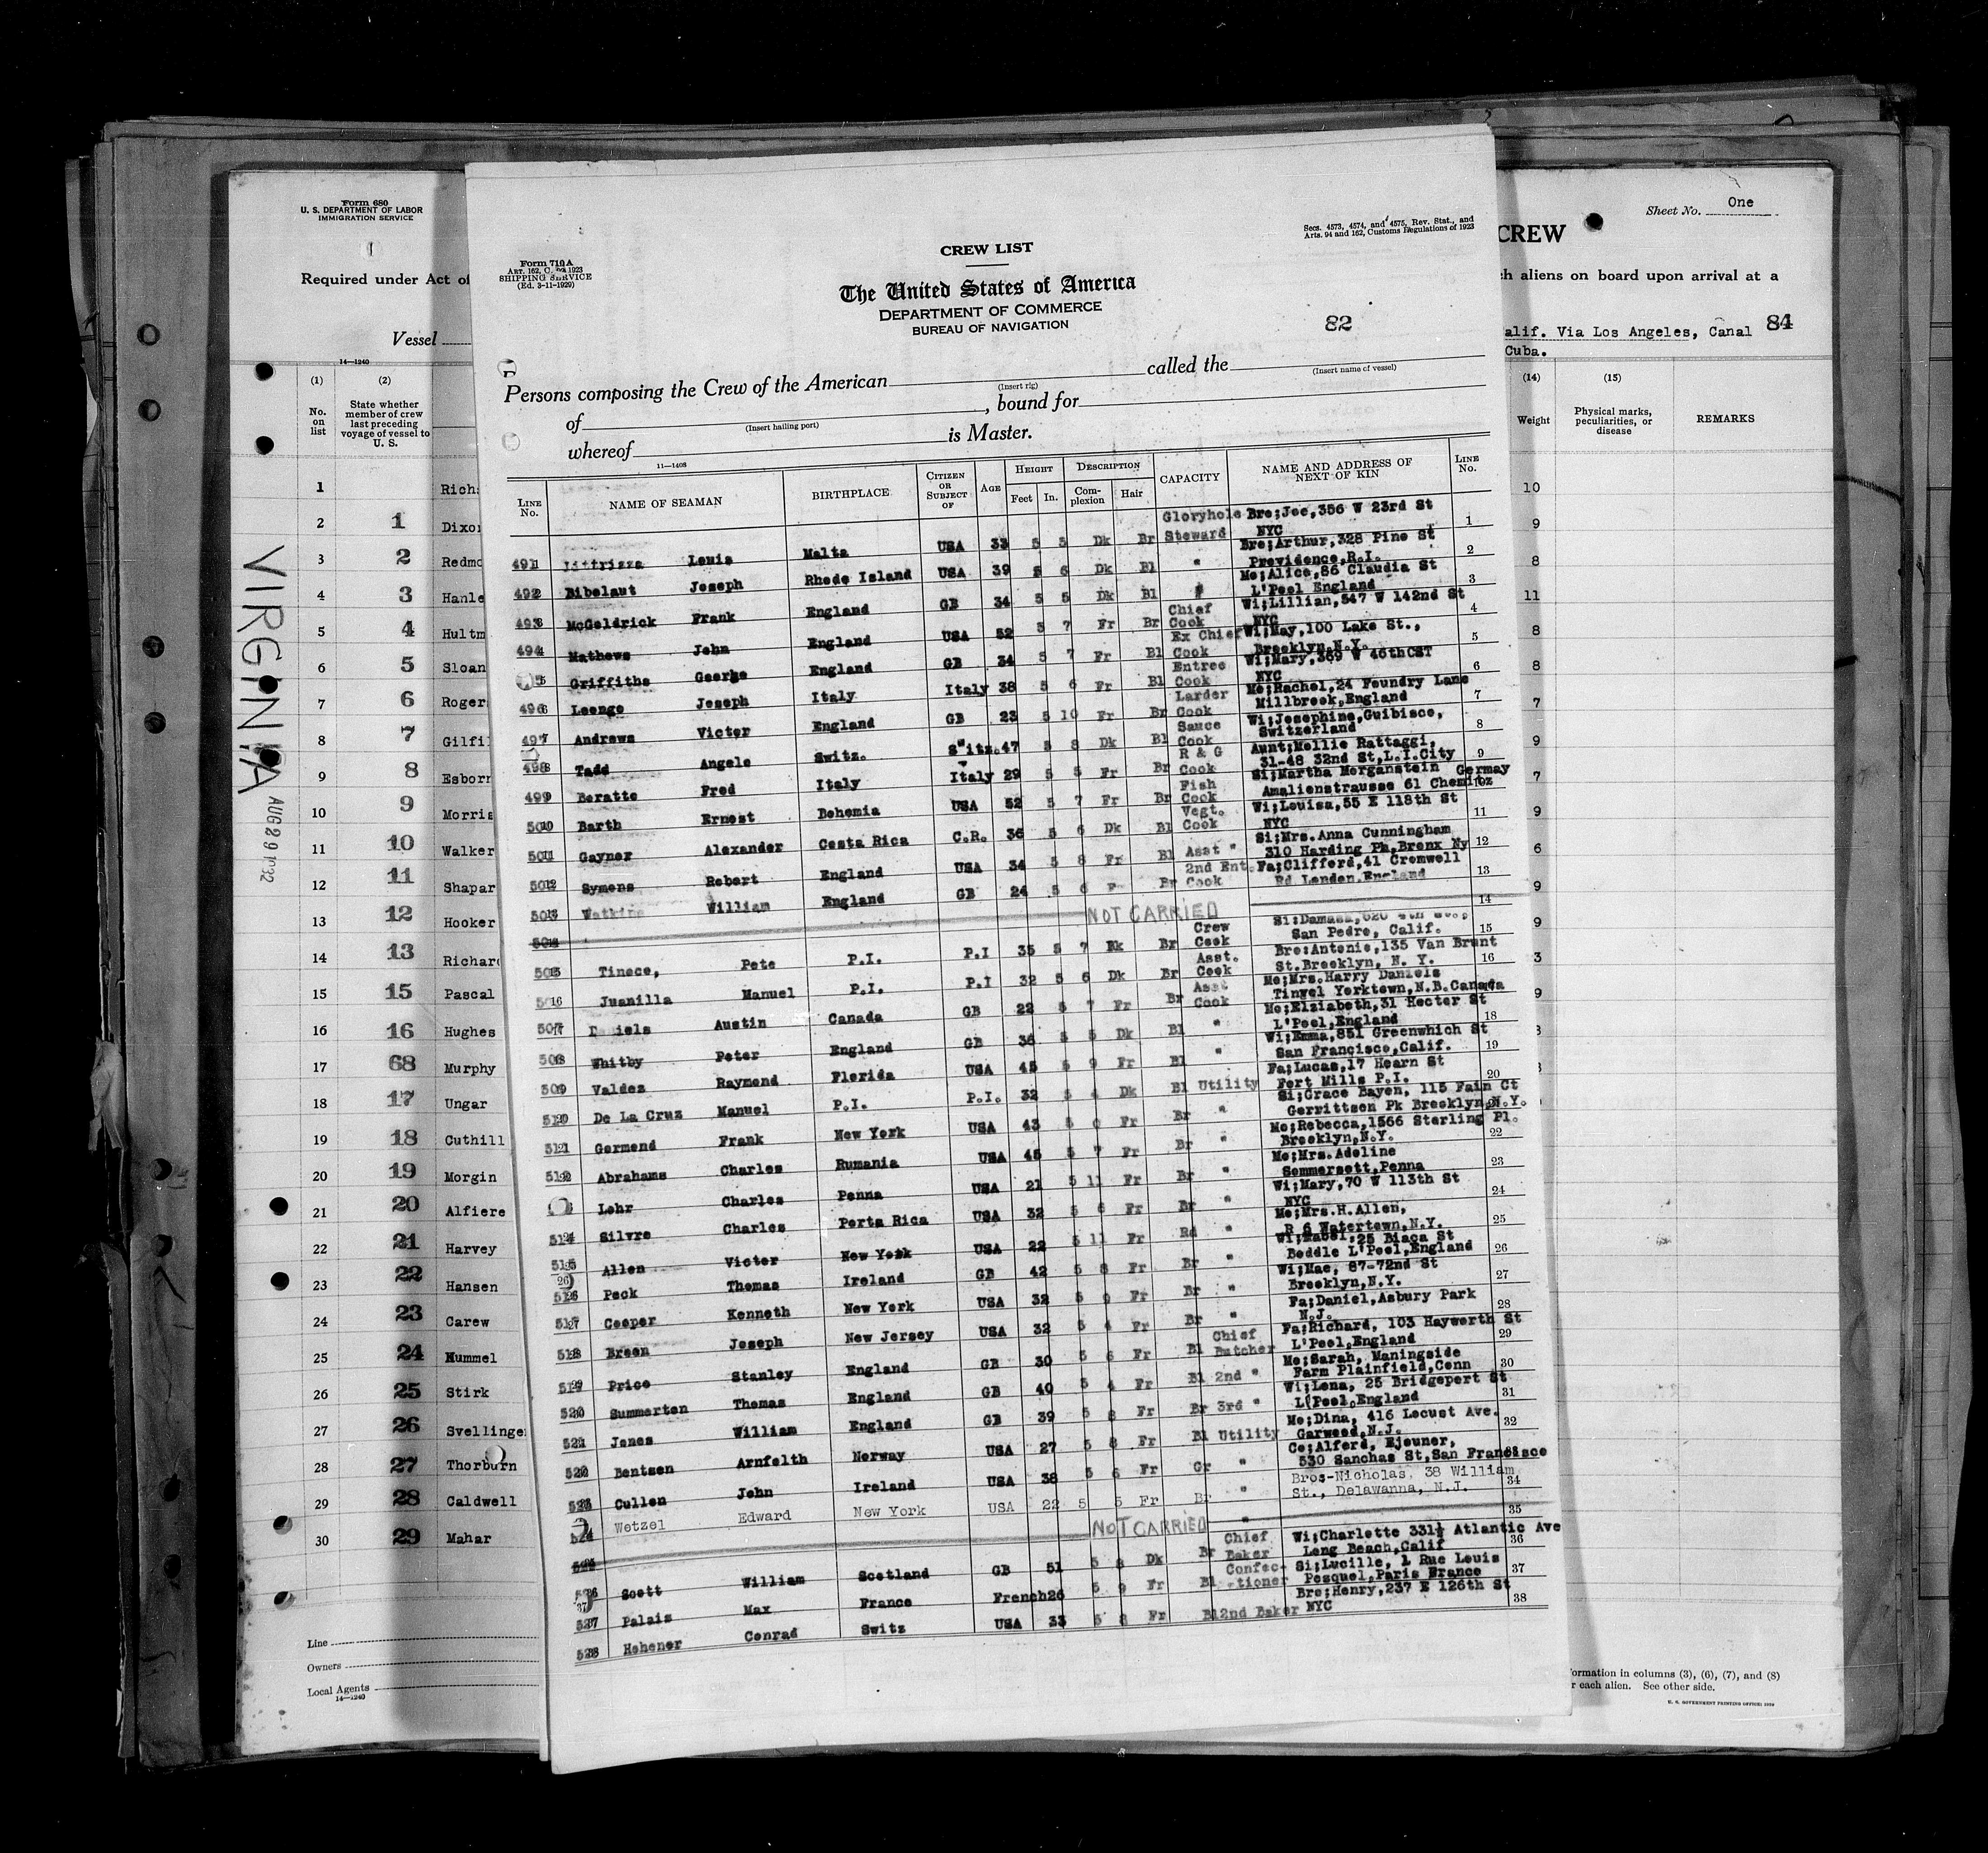 Form 680
U. S. DEPARTMENT OF LABOR
IMMIGRATION SERVICE
Required under Act of
Vessel
14—1240
(1) (2)
No. on list
State whether member of crew last preceding voyage of vessel to U. S.
1 Rich
2 1 Dixon
3 2 Redmo
4 3 Hanle
5 4 Hultm
6 5 Sloan
7 6 Roger
8 7 Gilfil
9 8 Esborn
10 9 Morris
11 10 Walker
12 11 Shapar
13 12 Hooker
14 13 Richard
15 15 Pascal
16 16 Hughes
17 68 Murphy
18 17 Ungar
19 18 Cuthill
20 19 Morgin
21 20 Alfiere
22 21 Harvey
23 22 Hansen
24 23 Carew
25 24 Hummel
26 25 Stirk
27 26 Svellinge
28 27 Thorburn
29 28 Caldwell
30 29 Mahar
Line
Owners
Local Agents
14—1240
VIRGINIA
AUG 29 1932
Form 710 A
ART. 162, C. 1923
SHIPPING SERVICE
(Ed. 3-11-1929)
CREW LIST
Secs. 4573, 4574, and 4575, Rev. Stat., and
Arts. 94 and 162, Customs Regulations of 1923
The United States of America
DEPARTMENT OF COMMERCE
BUREAU OF NAVIGATION
82
Persons composing the Crew of the American called the
(Insert rig) (Insert name of vessel)
of , bound for
(Insert hailing port)
whereof is Master.
11—1408
LINE No. NAME OF SEAMAN BIRTHPLACE CITIZEN OR SUBJECT OF AGE HEIGHT Feet In. DESCRIPTION Complexion Hair CAPACITY NAME AND ADDRESS OF NEXT OF KIN LINE No.
Gloryhole Bro;Joe,356 W 23rd St
491 Louis Malta USA 33 5 5 Dk Br Steward NYC 1
Bro;Arthur,328 Pine St
492 Bibelaut Joseph Rhode Island USA 39 5 6 Dk Bl " Providence,R.I. 2
Mo;Alice,86 Claudia St
493 McGoldrick Frank England GB 34 5 5 Dk Bl L'Pool England 3
Chief Wi;Lillian,547 W 142nd St
494 Mathews John England USA 52 5 7 Fr Br Cook NYC 4
Ex Chief Wi;May,100 Lake St.,
Griffiths George England GB 34 5 7 Fr Bl Cook Brooklyn,N.Y. 5
Entree Wi;Mary,369 W 46th ST
496 Loengo Joseph Italy Italy 38 5 6 Fr Bl Cook NYC 6
Larder Mo;Rachel,24 Foundry Lane
497 Andrews Victor England GB 23 5 10 Fr Br Cook Millbrook,England 7
Sauce Wi;Josephine,Guibisco,
498 Tadd Angelo Switz. Switz. 47 5 8 Dk Bl Cook Switzerland 8
R & G Aunt;Mollie Rattaggi,
499 Beratto Fred Italy Italy 29 5 5 Fr Br Cook 31-48 32nd St,L.I.City 9
Fish Si;Martha Morganstein Germay
Barth Ernest Bohemia USA 52 5 7 Fr Br Cook Amalienstrausse 61 Chemitz 10
Vegt. Wi;Louisa,55 E 118th St
Gaynor Alexander Costa Rica C.R. 36 5 6 Dk Bl Cook NYC 11
Si;Mrs.Anna Cunningham
Symons Robert England USA 34 5 8 Fr Bl Asst " 310 Harding Pk,Bronx Ny 12
2nd Ent. Fa;Clifford,41 Cromwell
Watkins William England GB 24 5 6 Br Cook Rd London,England 13
NOT CARRIED 14
Crew Si:Damasa,
Tinoco, Pete P.I. P.I 35 5 7 Dk Br Cook San Pedro, Calif. 15
Asst. Bro:Antonio,135 Van Brunt
Juanilla Manuel P.I. P.I 32 5 6 Dk Br Cook St.Brooklyn, N. Y. 16
Asst Mo;Mrs.Harry Daniels
Daniels Austin Canada GB 22 5 7 Fr Br Cook Tinvel Yorktown,N.B.Canada
Mo;Elziabeth,31 Hector St
Whitby Peter England GB 36 5 5 Dk Bl " L'Pool,England 18
Wi;Emma,851 Greenwhich St
Valdez Raymond Florida USA 45 5 9 Fr Bl " San Francisco,Calif. 19
Fa;Lucas,17 Hearn St
De La Cruz Manuel P.I. P.I. 32 5 4 Dk Bl Utility Fort Mills P.I. 20
Si;Grace Bayen, 115 Fain Ct
Germond Frank New York USA 43 5 Fr Br " Gerrittsen Pk Brooklyn,N.Y.
Mo;Rebecca,1566 Sterling Pl.
Abrahams Charles Rumania USA 45 5 7 Fr Br " Brooklyn,N.Y. 22
Mo;Mrs.Adeline
Lohr Charles Penna USA 21 5 11 Fr Br " Sommersett,Penna 23
Wi;Mary,70 W 113th St
Silvre Charles Porta Rica USA 32 5 6 Fr Br " NYC 24
Mo;Mrs.H.Allen,
Allen Victor New York USA 22 5 11 Fr Rd " R 6 Watertown,N.Y. 25
Wi;Mabel,25 Biaca St
Peck Thomas Ireland GB 42 5 8 Fr Br " Boddle L'Pool,England 26
Wi;Mae, 87-72nd St
Cooper Kenneth New York USA 32 5 9 Fr Br " Brooklyn,N.Y. 27
Fa;Daniel,Asbury Park
Breen Joseph New Jersey USA 32 5 4 Fr Br " N.J. 28
Chief Fa;Richard, 103 Hayworth St
Price Stanley England GB 30 5 6 Fr Bl Butcher L'Pool,England 29
Mo;Sarah, Maningside
Summerton Thomas England GB 40 5 4 Fr Bl 2nd " Farm Plainfield,Conn 30
Wi;Lena, 25 Bridgeport St
Jones William England GB 39 5 8 Fr Br 3rd " L'Pool,England 31
Mo;Dina, 416 Locust Ave.
Bentsen Arnfelth Norway USA 27 5 8 Fr Bl Utility Garwood,N.J. 32
Co;Alferd, Ejeuner,
Cullen John Ireland USA 38 5 6 Fr Gr " 530 Sanchas St,San Francisco
Bros-Nicholas, 38 William
Wetzel Edward New York USA 22 5 5 Fr Br " St., Delawanna, N.J. 34
NOT CARRIED " 35
Chief Wi;Charlotte 331½ Atlantic Ave
Scott William Scotland GB 51 5 8 Dk Br Baker Long Beach,Calif 36
Confec- Si;Lucille, 1 Rue Louis
Palais Max France French 26 5 9 Fr Bl tioner Pesquel,Paris France 37
Bro;Henry,237 E 126th St
Hohener Conrad Switz USA 33 5 8 Fr Bl 2nd Baker NYC 38
Sheet No. One
CREW
ch aliens on board upon arrival at a
alif. Via Los Angeles, Canal 84
Cuba.
(14) (15)
Weight
Physical marks, peculiarities, or disease
REMARKS
10
9
8
11
8
8
7
9
7
9
6
9
9
3
9
formation in columns (3), (6), (7), and (8)
r each alien. See other side.
U. S. GOVERNMENT PRINTING OFFICE